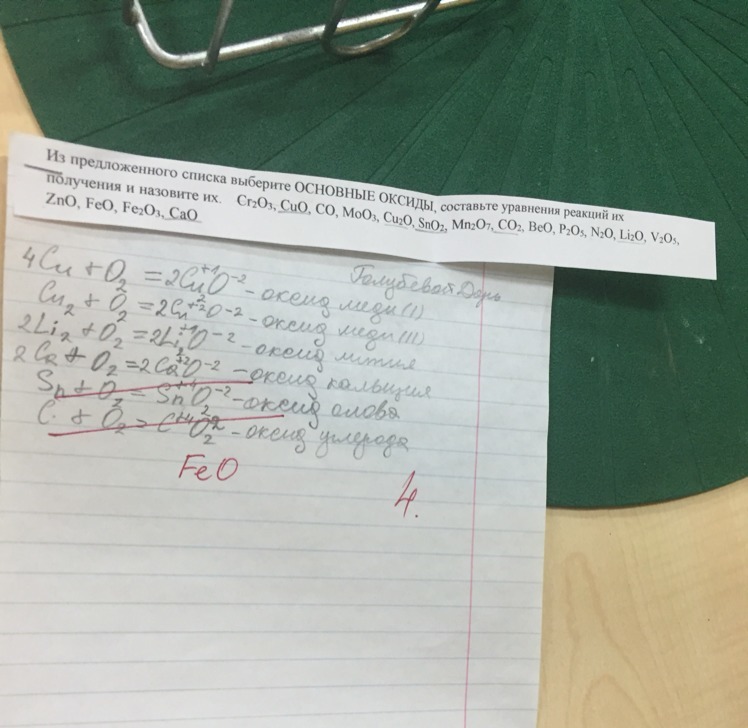 Из предложенного списка выберите ОСНОВНЫЕ ОКСИДЫ, составьте уравнения реакций их
получения и назовите их. Cr₂O₃, CuO, CO, MoO₃, Cu₂O, SnO₂, Mn₂O₇, CO₂, BeO, P₂O₅, N₂O, Li₂O, V₂O₅,
ZnO, FeO, Fe₂O₃, CaO
Голубевой
4Cu + O₂ = 2Cu₂⁺¹O⁻² - оксид меди (I)
Cu₂ + O₂ = 2Cu⁺²O⁻² - оксид меди (II)
2Li₂ + O₂ = 2Li₂⁺¹O⁻² - оксид лития
2Ca + O₂ = 2Ca⁺²O⁻² - оксид кальция
Sn + O₂ = Sn⁺⁴O₂⁻² - оксид олова
C + O₂ = C⁺⁴O₂⁻² - оксид углерода
FeO
4.